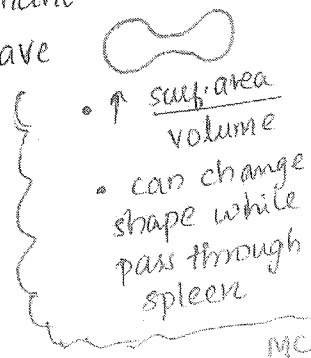 ave
• ↑ surf. area
volume
• can change
shape while
pass through
spleen
MC